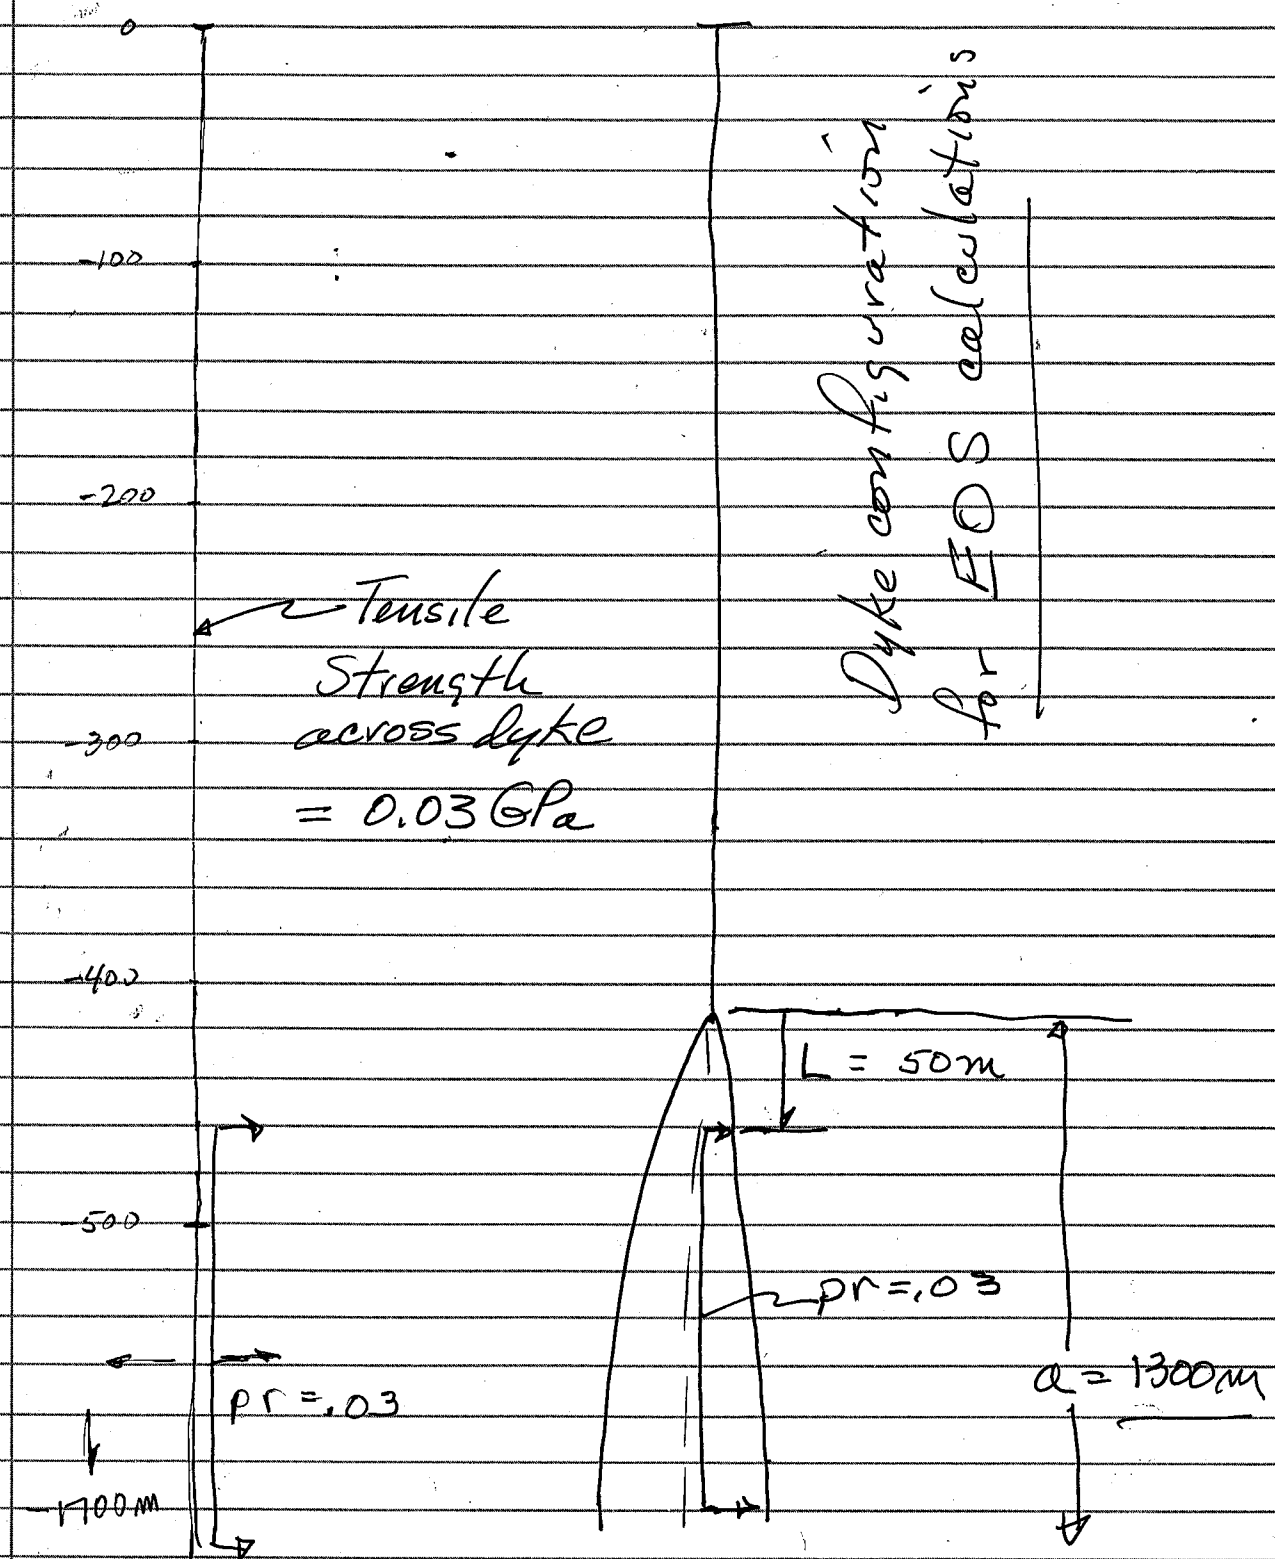 0
-100
-200
-300
-400
-500
-1700m
Tensile
Strength
across dyke
= 0.03 GPa
Dyke configuration
for EOS calculations
L = 50m
pr=.03
a = 1300m
pr=.03